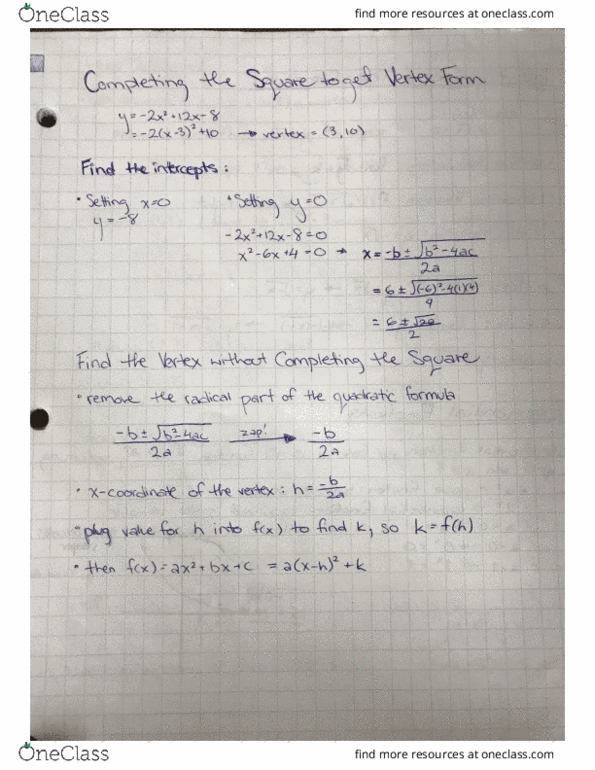 OneClass
find more resources at oneclass.com
Completing the Square to get Vertex Form
y = -2x² + 12x - 8
= -2(x-3)² + 10 → vertex = (3,10)
Find the intercepts:
• Setting x=0
y = -8
• Setting y=0
-2x²+12x-8=0
x²-6x+4=0 → x = -b ± √b²-4ac / 2a
= 6 ± √(-6)²-4(1)(4) / 4
= 6 ± √20 / 2
Find the Vertex without Completing the Square
• remove the radical part of the quadratic formula
-b ± √b²-4ac / 2a zap! → -b / 2a
• x-coordinate of the vertex: h = -b / 2a
• plug value for h into f(x) to find k, so k = f(h)
• then f(x) = ax² + bx + c = a(x-h)² + k
OneClass
find more resources at oneclass.com